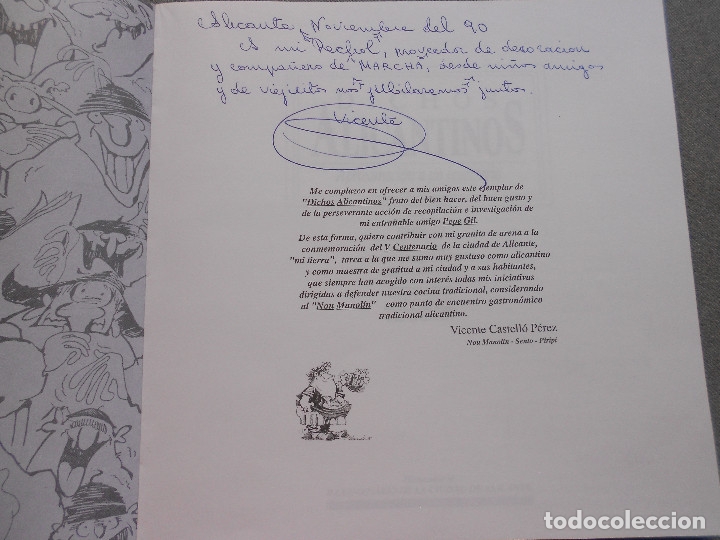 Alicante, Noviembre del 90
A mi "Pechol", proveedor de decoracion
y compañero de "MARCHA", desde niños amigos
y de viejecitos nos "jubilaremos" juntos.
Vicente
Me complazco en ofrecer a mis amigos este ejemplar de
"Dichos Alicantinos" fruto del bien hacer, del buen gusto y
de la perseverante acción de recopilación e investigación de
mi entrañable amigo Pepe Gil.
De esta forma, quiero contribuir con mi granito de arena a la
conmemoración del V Centenario de la ciudad de Alicante,
"mi tierra", tarea a la que me sumo muy gustoso como alicantino
y como muestra de gratitud a mi ciudad y a sus habitantes,
que siempre han acogido con interés todas mis iniciativas
dirigidas a defender nuestra cocina tradicional, considerando
al "Nou Manolín" como punto de encuentro gastronómico
tradicional alicantino.
Vicente Castelló Pérez
Nou Manolín - Sento - Piripi
todocoleccion